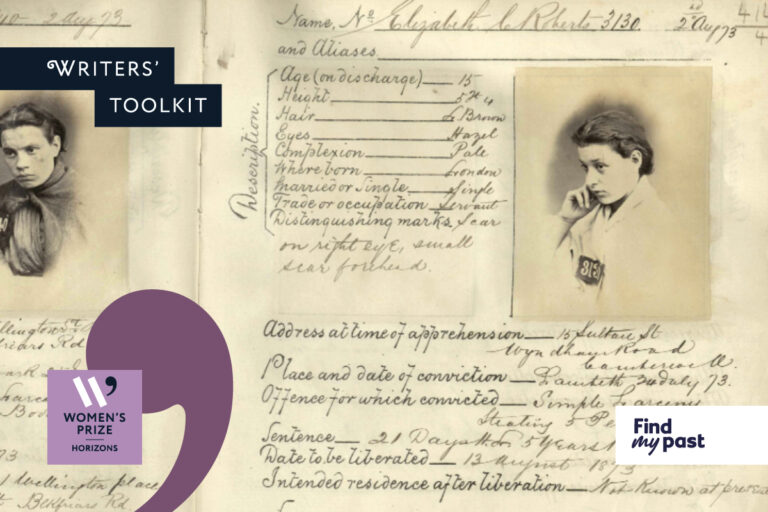 WRITERS'
TOOLKIT
2 Aug 73
Name, No Elizabeth C Roberts 3130.
2 Aug 73
and Aliases
Description.
Age (on discharge) 15
Height 5 ft 4
Hair L Brown
Eyes Hazel
Complexion Pale
Where born London
Married or Single Single
Trade or occupation Servant
Distinguishing marks. Scar
on right eye, small
scar forehead.
313
Address at time of apprehension 15 Sultan St
Wyndham Road
Camberwell.
Place and date of conviction Lambeth 24 July 73.
Offence for which convicted Simple Larceny
Stealing 5
Sentence 21 Days 5 Years
Date to be liberated 13 August 1873
Intended residence after liberation Not Known at present
Wellington St
Rd
Wellington place
Blkfriars Rd.
WOMEN'S
PRIZE
HORIZONS
Find
my past